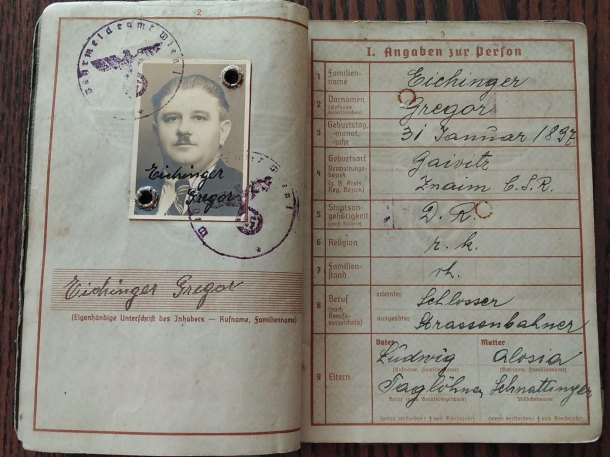 2
Wehrmeldeamt Wien
Eichinger
Gregor
Eichinger Gregor
(Eigenhändige Unterschrift des Inhabers — Rufname, Familienname)
3
I. Angaben zur Person
1 Familien-
name
Eichinger
2 Vornamen
(Rufname
unterstreichen)
Gregor
3 Geburtstag,
-monat,
-jahr
31 Januar 1897
4 Geburtsort
Verwaltungs-
bezirk
(z. B. Kreis,
Reg.-Bezirk)
Gaiwitz
Znaim C.S.R.
5 Staatsan-
gehörigkeit
(auch frühere)
D. R.
6 Religion
r. k.
7 Familien-
stand
vh.
8 Beruf
(nach
Berufs-
verzeichnis)
erlernter
Schlosser
ausgeübter
Strassenbahner
9 Eltern
Vater
Mutter
Ludwig
Alosia
(Rufname, Familienname)
(Rufname, Familienname)
Taglöhner
Schnattinger
Beruf (nach Berufsverzeichnis)
Mädchenname
(wenn verstorben: † und Sterbejahr)
(wenn verstorben: † und Sterbejahr)